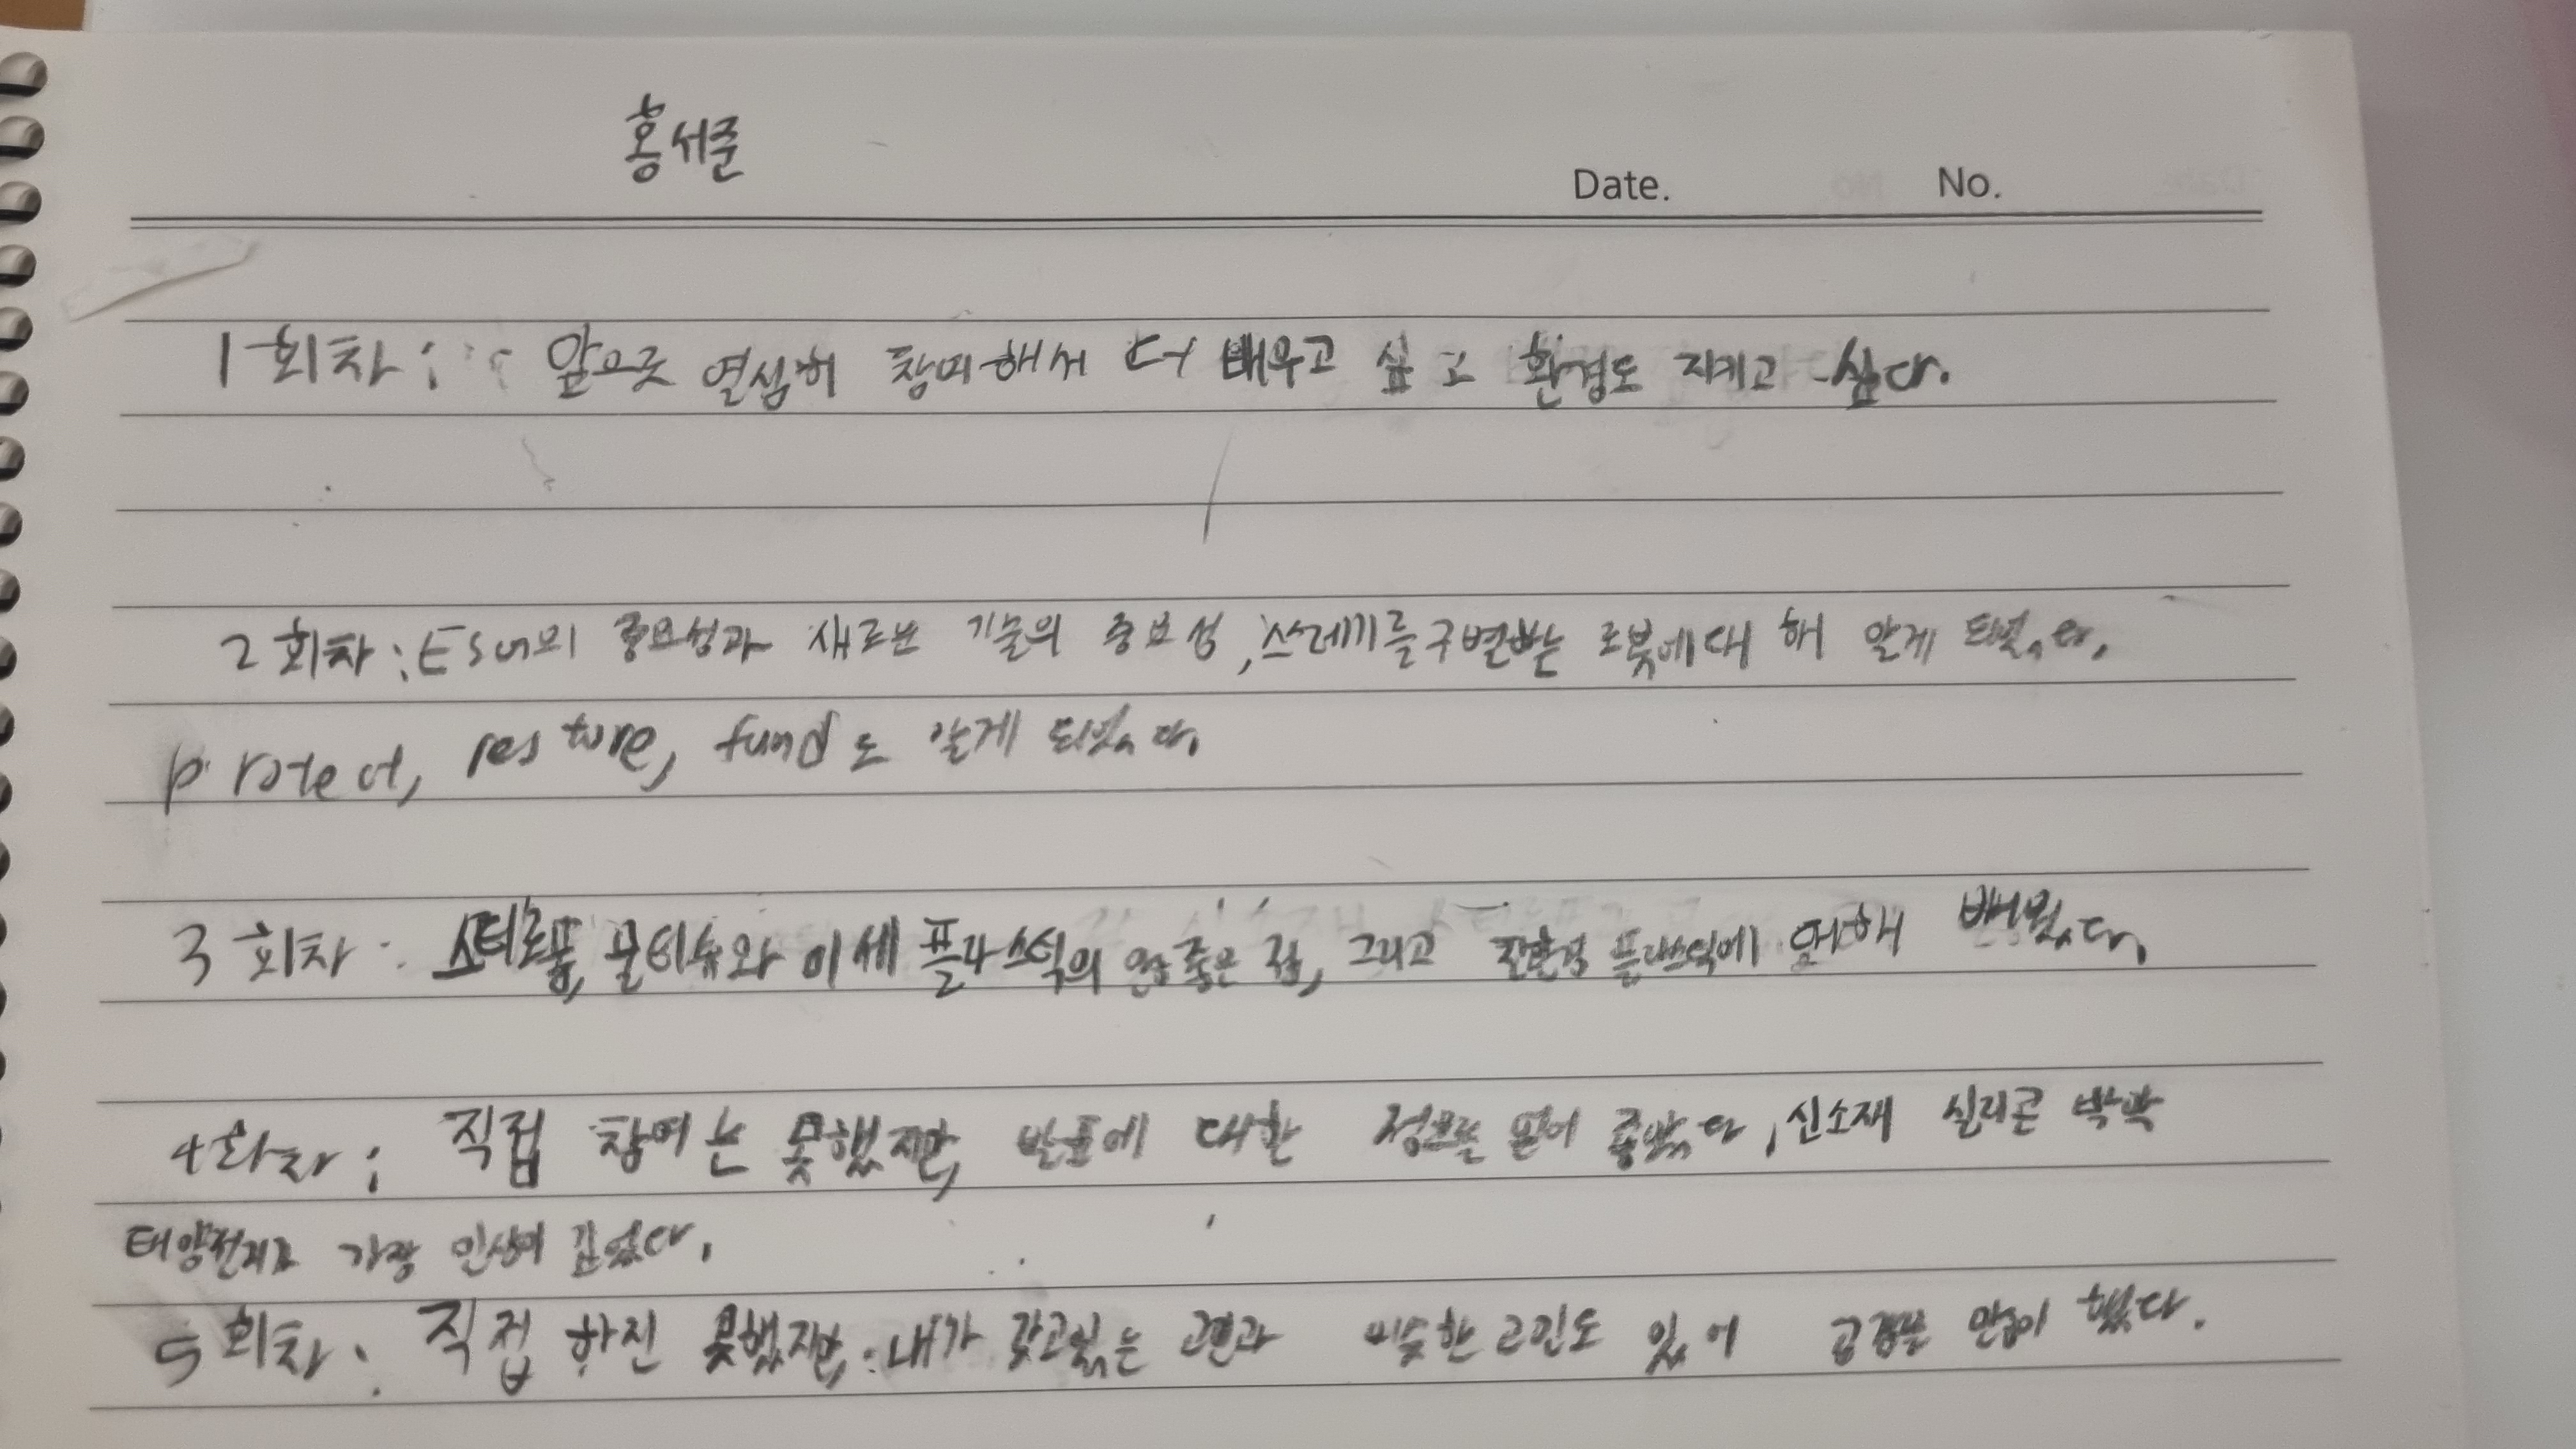 홍서준
Date. No.
1회차 : 앞으로 열심히 참여해서 더 배우고 싶고 환경도 지키고 싶다.
2회차 : ESG의 중요성과 새로운 기술의 중요성, 쓰레기를 구별하는 로봇에 대해 알게 되었다.
protect, restore, fund도 알게 되었다.
3회차 : 스티로폼, 물티슈와 미세 플라스틱의 안 좋은 점, 그리고 친환경 플라스틱에 대해 배웠다.
4회차 : 직접 참여는 못했지만, 발표에 대한 정보를 얻어 좋았다, 신소재 실리콘 박막
태양전지로 가장 인상이 깊었다.
5회차 : 직접 하진 못했지만, 내가 갖고있는 고민과 비슷한 고민도 있어 공감을 많이 했다.